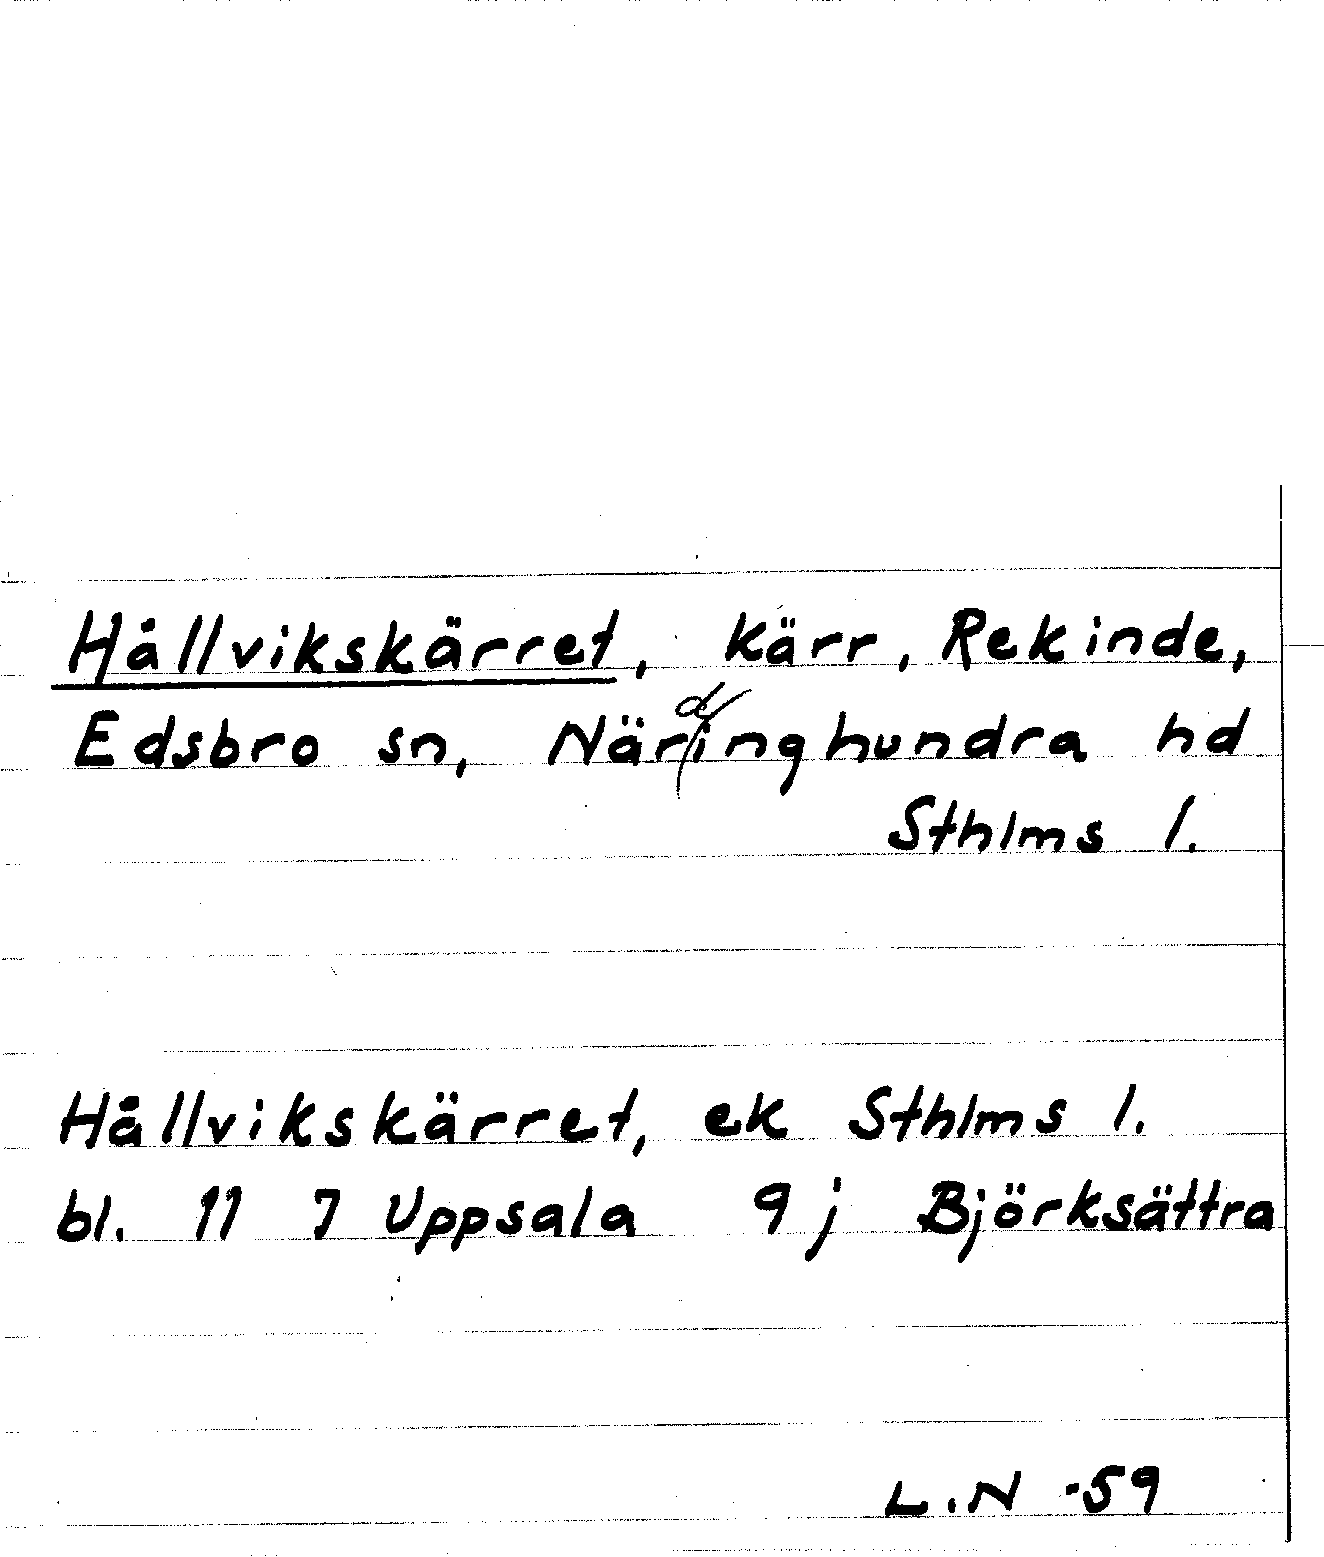 Hållvikskärret, kärr, Rekinde,
Edsbro sn, Närdinghundra hd
Sthlms l.
Hållvikskärret, ek Sthlms l.
bl. 11 7 Uppsala 9j Björksättra
L.N -59